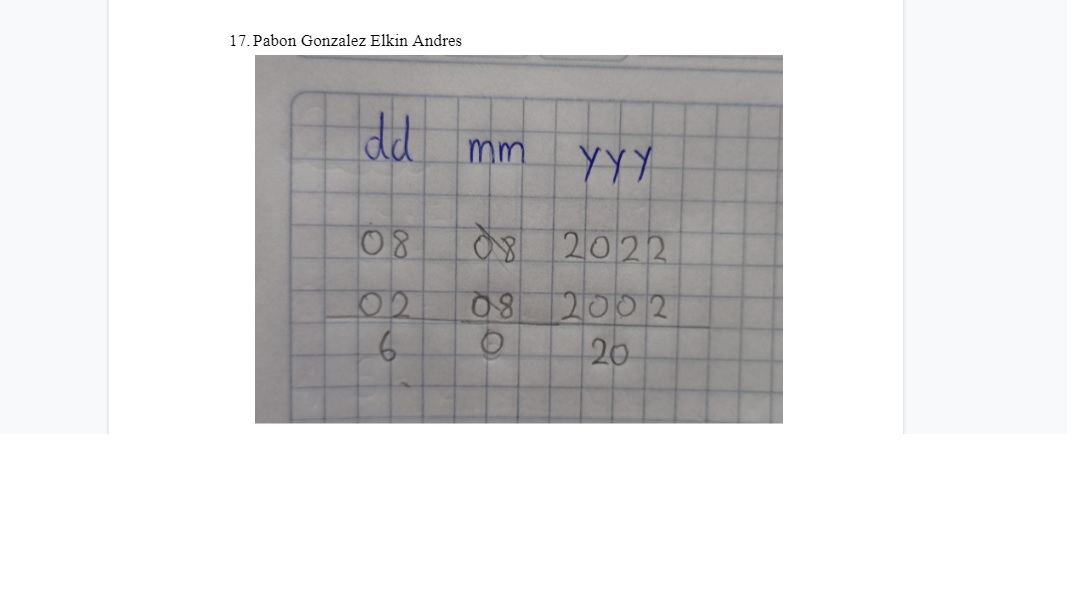 17. Pabon Gonzalez Elkin Andres
dd mm yyy
08 08 2022
02 08 2002
6 0 20